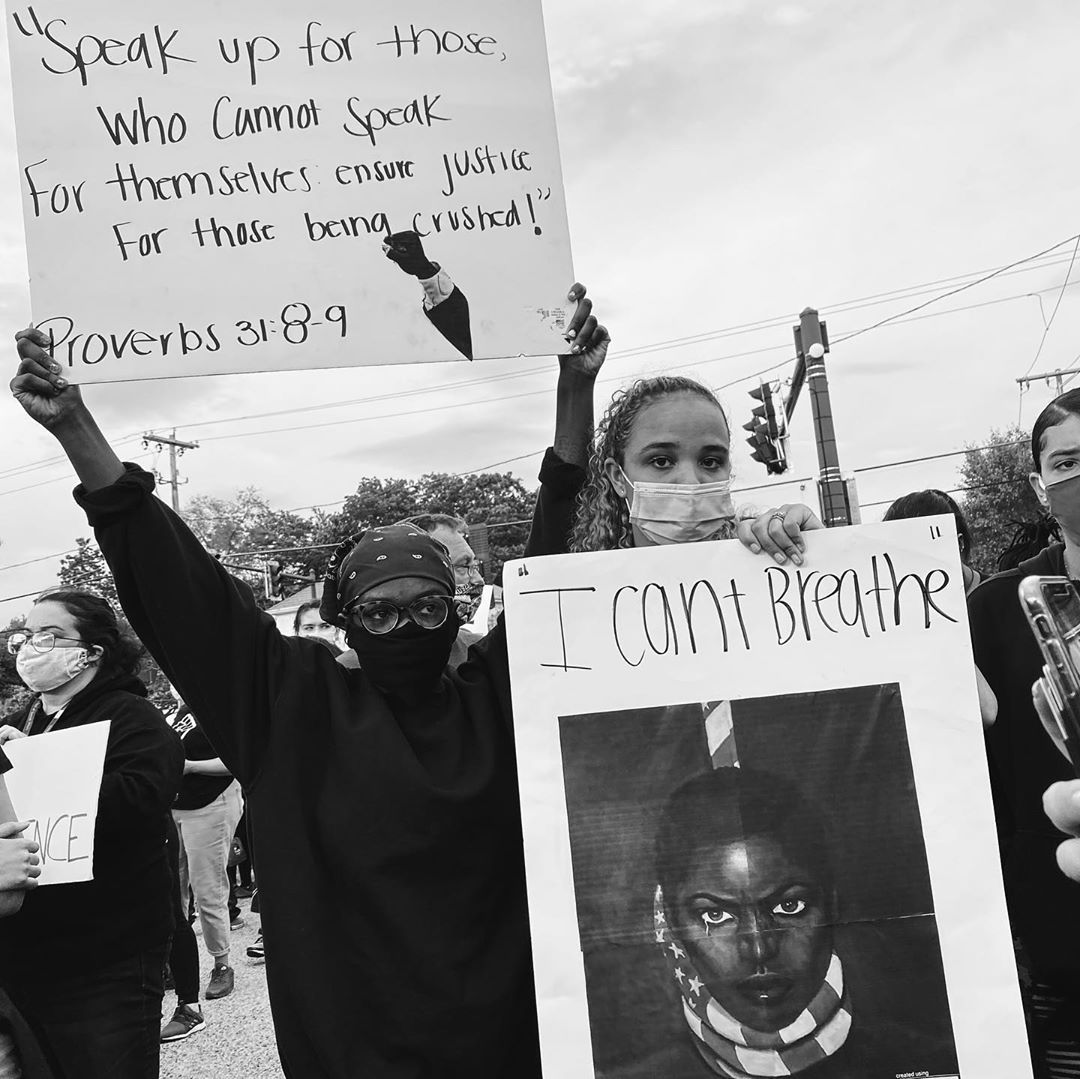 "Speak up for those,
Who Cannot Speak
For themselves: ensure justice
For those being crushed!"
Proverbs 31:8-9
"I can't Breathe"
NCE
created using